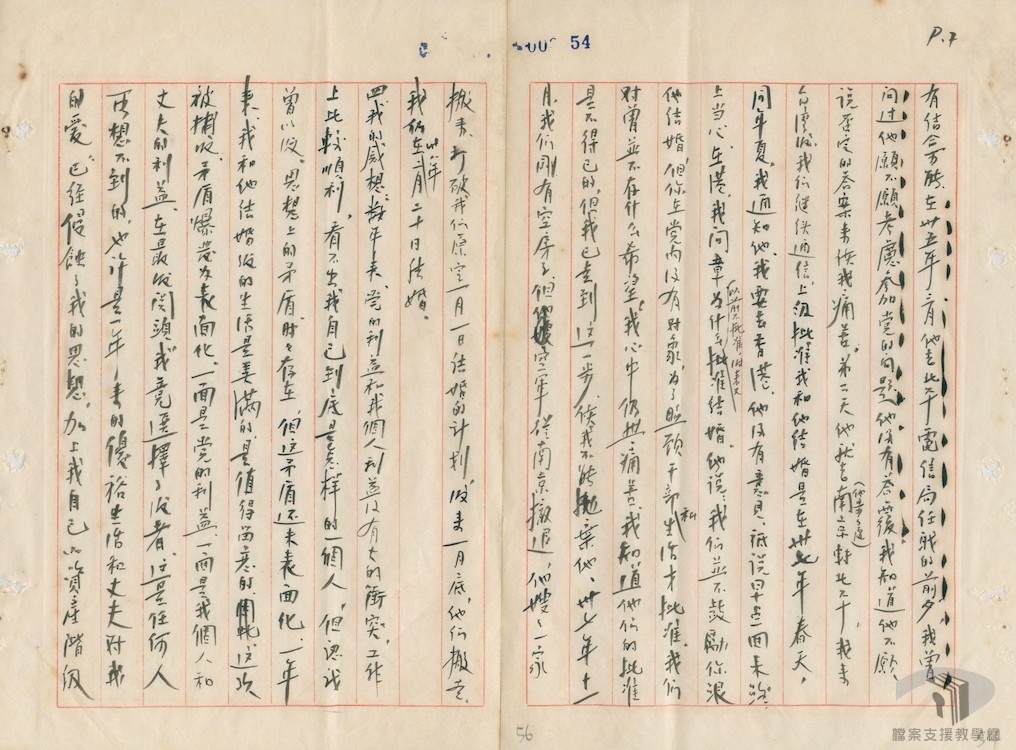 P.7
00 54
有結合可能、在卅五年二月他去北平電信局任職的前夕、我曾
问过他願不願考慮參加党的问題、他沒有答覆、我知道他不願
說否定的答案来使我痛苦、第二天他就去南
上京轉北平、我来
台灣後我們继续通信、上級批准我和他结婚是在卅七年春天、
同年夏、我通知他、我要去香港、他沒有意見、祇說早点回来、
上当心、在港、我问章为什么
以前不批准、後来又
批准结婚、他說、我們並不鼓勵你浪
他结婚、但你在党内沒有对象、为了照顾干部私生活才批准、我們
对曾並不存什么希望、我心中仍無痛苦、我知道他們的批准
是不得已的、但我已走到这一步、使我不能抛棄他、卅七年十一
月、我們刚有空房子、但他嫂空軍從南京撤退、他嫂一家
搬来、打破我們原定一月一日结婚的计划、後来一月底、他們搬走、
我們在卅八年二月二十日结婚。
四我的感想、数年来、党的利益和我個人利益没有大的衝突、工作
上比較順利、看不出我自己到底是怎样的一個人、但認识
曾以後、思想上的矛盾时时存在、但这矛盾还未表面化、一年
来、我和他结婚後的生活是美满的、是值得留恋的、这次
被捕後、矛盾爆發为表面化、一面是党的利益、一面是我個人和
丈夫的利益、在最後関頭、我竟選擇了後者、这是任何人
所想不到的、也许是一年来的優裕生活和丈夫对我
的愛、已经侵蝕了我的思想、加上我自己小資産階級
56
檔案支援教學網